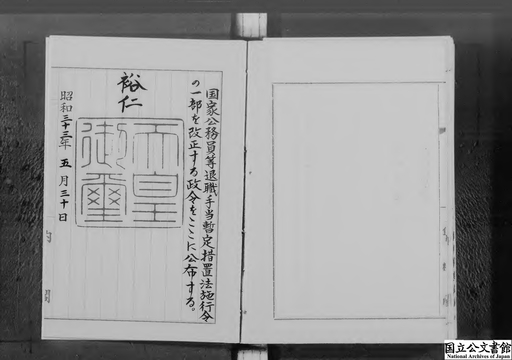 国家公務員等退職手当暫定措置法施行令
の一部を改正する政令をここに公布する。
裕仁
天皇
御璽
昭和三十三年五月三十日
国立公文書館
National Archives of Japan